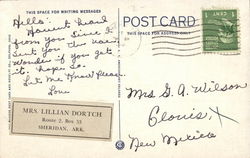 THIS SPACE FOR WRITING MESSAGES
POST CARD
THIS SPACE FOR ADDRESS ONLY
1¢
Hello.
Havent heard
from you since I
sent you the
wonder if you get
it. hope
Let Me Know Please.
Love
MRS. LILLIAN DORTCH
Route 2, Box 33
SHERIDAN, ARK.
Mrs G. A. Wilson
Clovis,
New Mexico